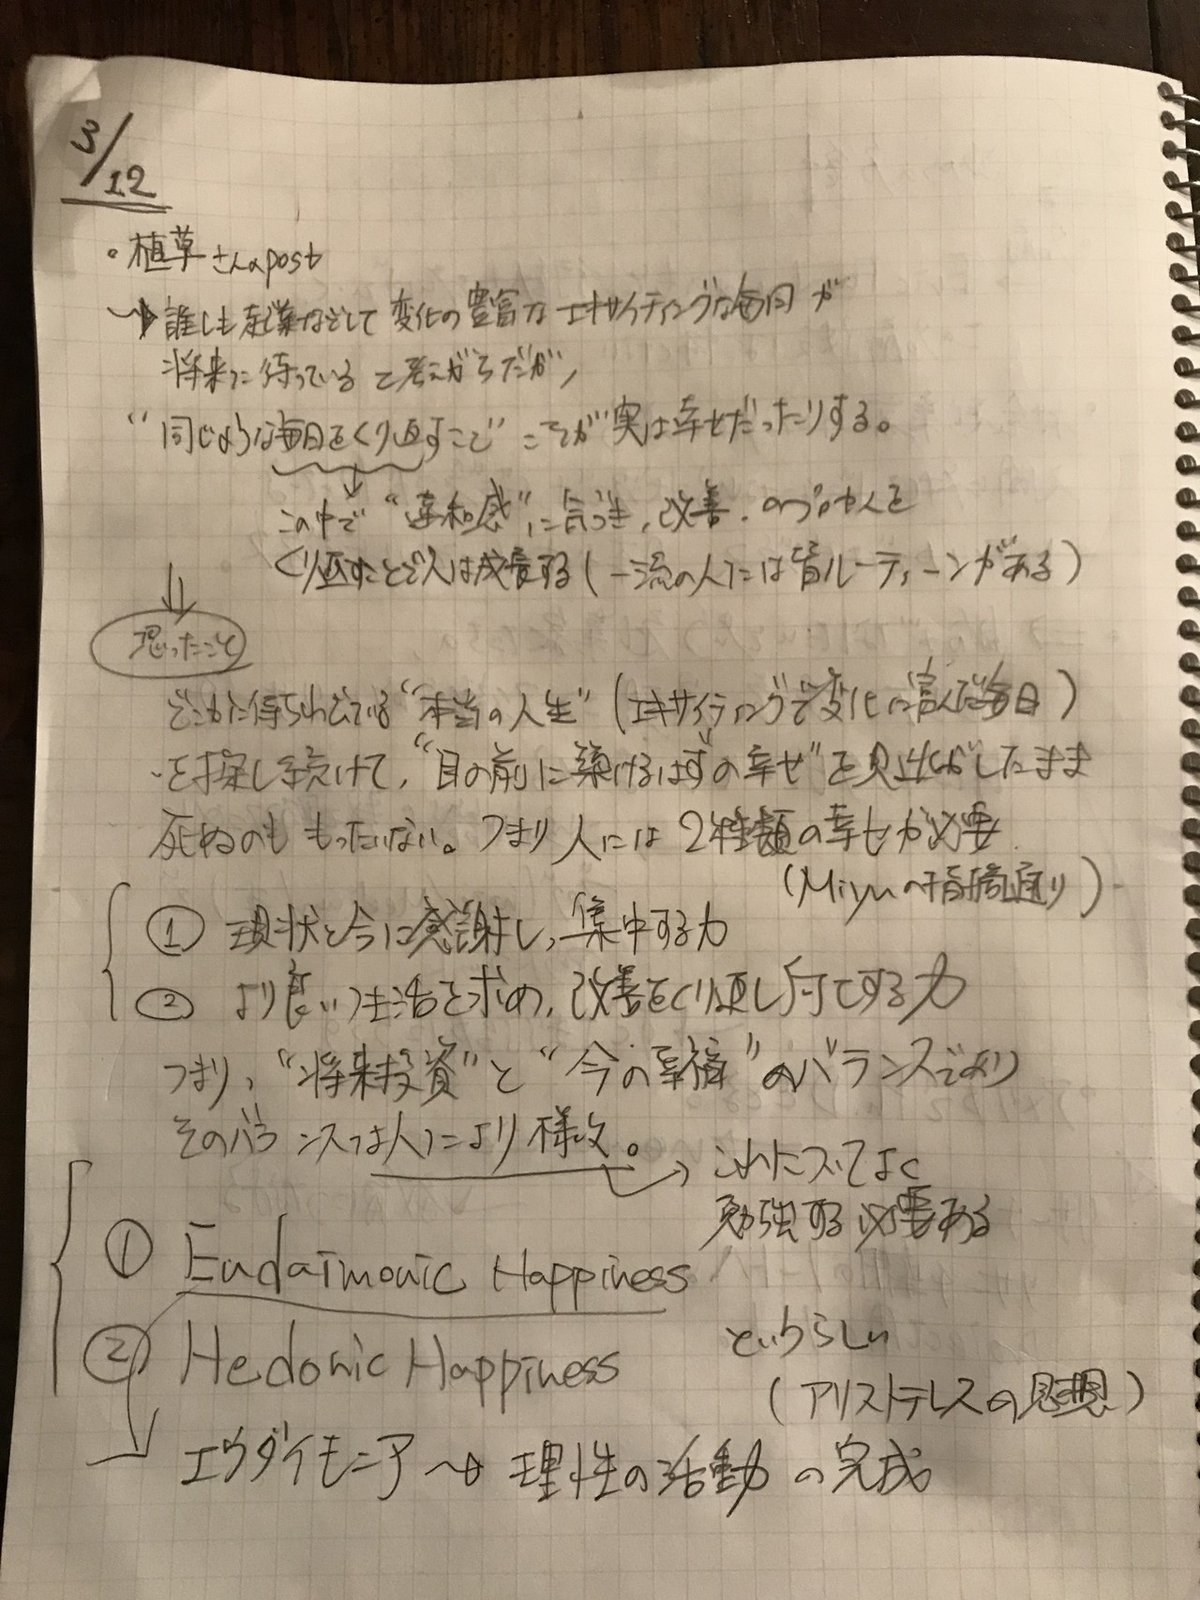 3/12
・植草さんのpost
→誰しも起業などして変化の豊富なエキサイティングな毎日が
将来に待っていると考えがちだが、
"同じような毎日をくり返すこと"こそが実は幸せだったりする。
この中で"違和感"に気づき、改善、のプロセスを
くり返すことで人は成長する(一流の人には皆ルーティーンがある)
思ったこと
どこかに待ちわびている"本当の人生"(エキサイティングで変化に富んだ毎日)
を探し続けて、"目の前に築けるはずの幸せ"を見逃がしたまま
死ぬのももったいない。つまり人には2種類の幸せが必要
(Miyuの指摘通り)
① 現状と今に感謝し、集中する力
② より良い生活を求め、改善をくり返し する力
つまり、"将来投資"と"今の幸福"のバランスであり
そのバランスは人により様々。
→これについてよく
勉強する必要ある
① Eudaimonic Happiness
② Hedonic Happiness
というらしい
(アリストテレスの思想)
→エウダイモニア→理性の活動の完成